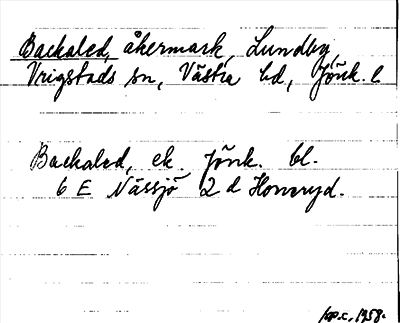 Backaled, åkermark, Lundby,
Vrigstads sn, Västra hd, Jönk. l
Backaled, ek. Jönk. bl.
6 E Nässjö 2 d Homaryd.
top.c. 1958.